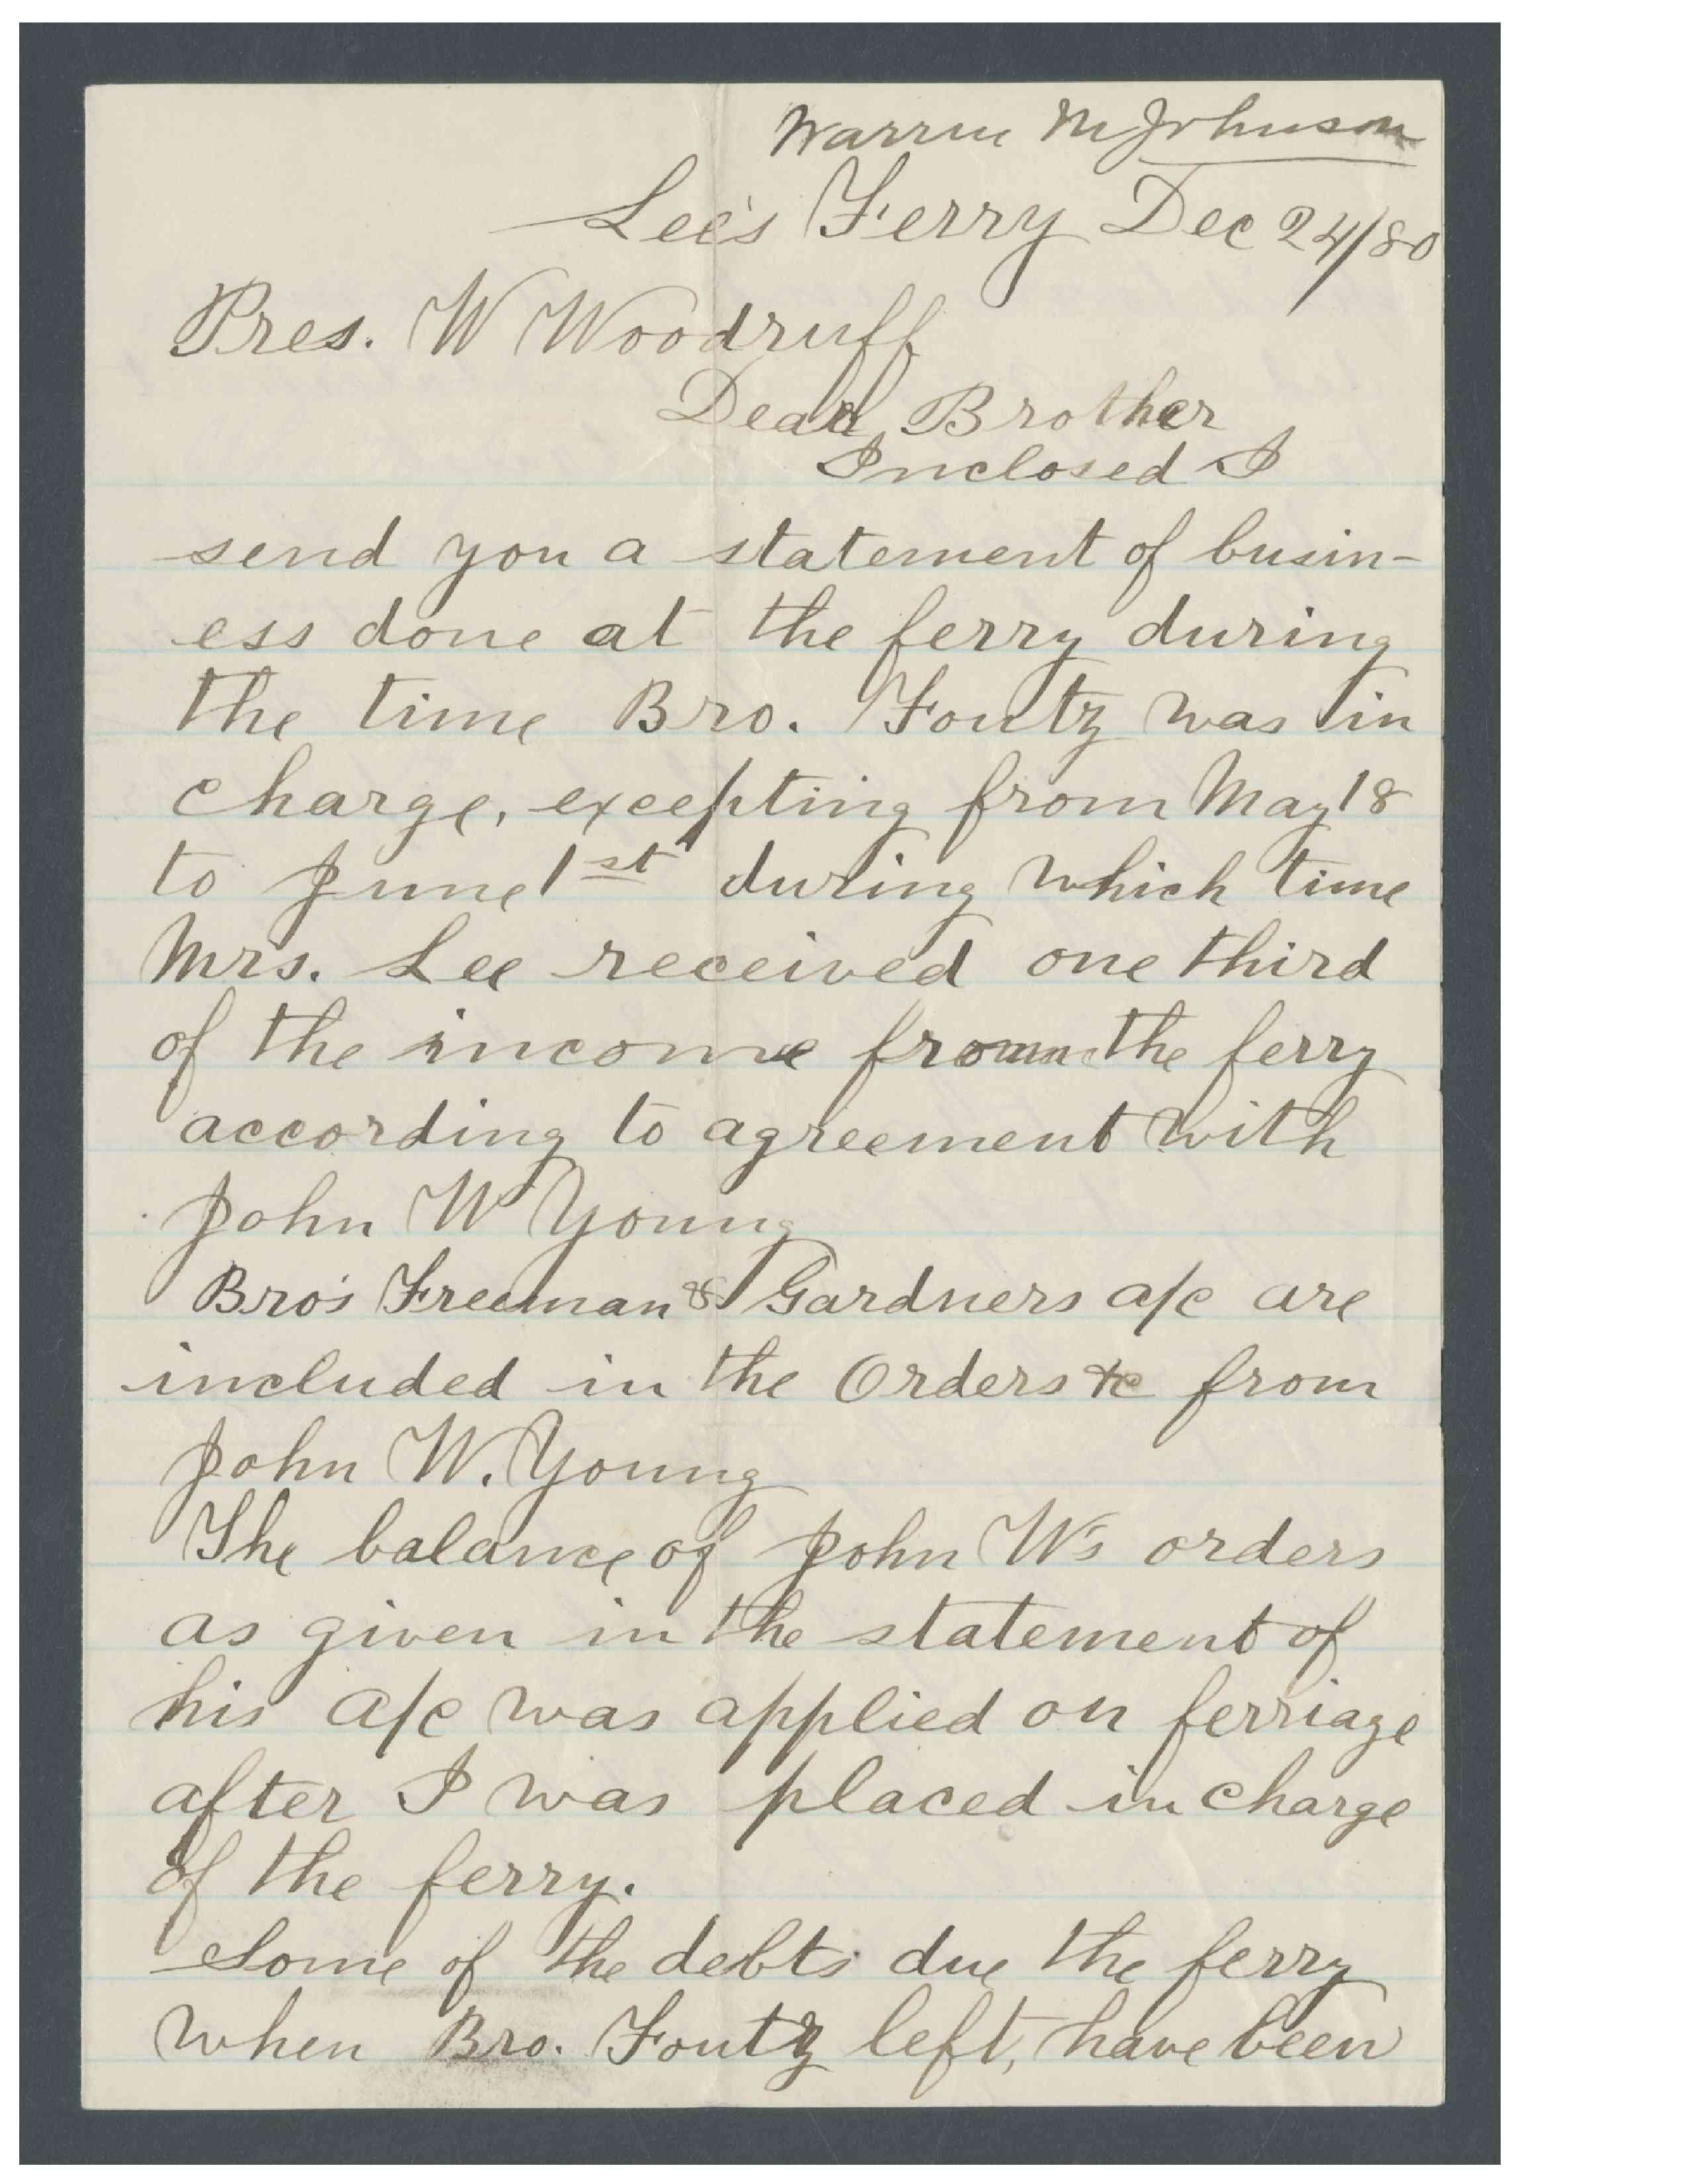 Warren M Johnson
Lee's Ferry Dec 24/80
Pres. W Woodruff
Dear Brother
Inclosed I
send you a statement of busin-
ess done at the ferry during
the time Bro. Foutz was in
charge, excepting from May 18
to June 1st during which time
Mrs. Lee received one third
of the income from the ferry
according to agreement with
John W Young
Bro's Freeman & Gardners a/c are
included in the Orders &c from
John W. Young
The balance of John W's orders
as given in the statement of
his a/c was applied on ferriage
after I was placed in charge
of the ferry.
Some of the debts due the ferry
when Bro. Foutz left, have been